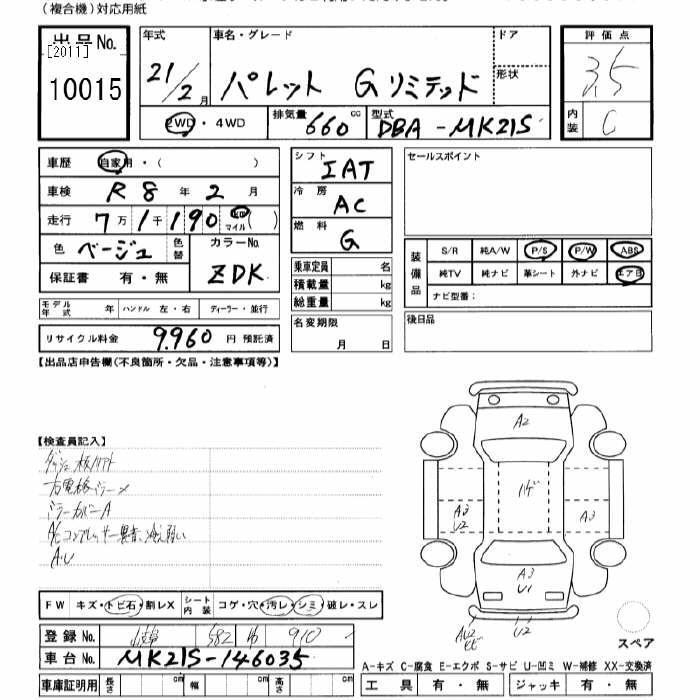 (複合機)対応用紙
出品No. 年式 車名・グレード ドア 評価点
[2011]
10015 21/2月 パレット Gリミテッド 形状 3.5
2WD・4WD 排気量 660 cc 型式 DBA-MK21S 内装 C
車歴 自家用・( )
シフト IAT セールスポイント
車検 R 8 年 2 月
冷房 AC
走行 7万1千190 km マイル ( )
燃料 G
色 ベージュ 色替 カラーNo. ZDK
保証書 有・無
装備品 S/R 純A/W P/S P/W ABS
純TV 純ナビ 革シート 外ナビ エアB
ナビ型番:
乗車定員 名
積載量 kg
総重量 kg
モデル年式 年 ハンドル 左・右 ディーラー・並行
名変期限 月 日
後日品
リサイクル料金 9,960 円 預託済
【出品店申告欄(不良箇所・欠品・注意事項等)】
【検査員記入】
ミラーカバーA
A/Cコンプレッサー異音、冷え弱い
A.U
A2
ハゲ
A3
U2
A3
A3
U1
U2
スペア
FW キズ・トビ石・割レX シート内装 コゲ・穴・汚レ・シミ・破レ・スレ
登録No. 582 910
車台No. MK21S-146035
A-キズ C-腐食 E-エクボ S-サビ U-凹ミ W-補修 XX-交換済
車庫証明用 長さ cm 幅 cm 高さ cm
工具 有・無 ジャッキ 有・無